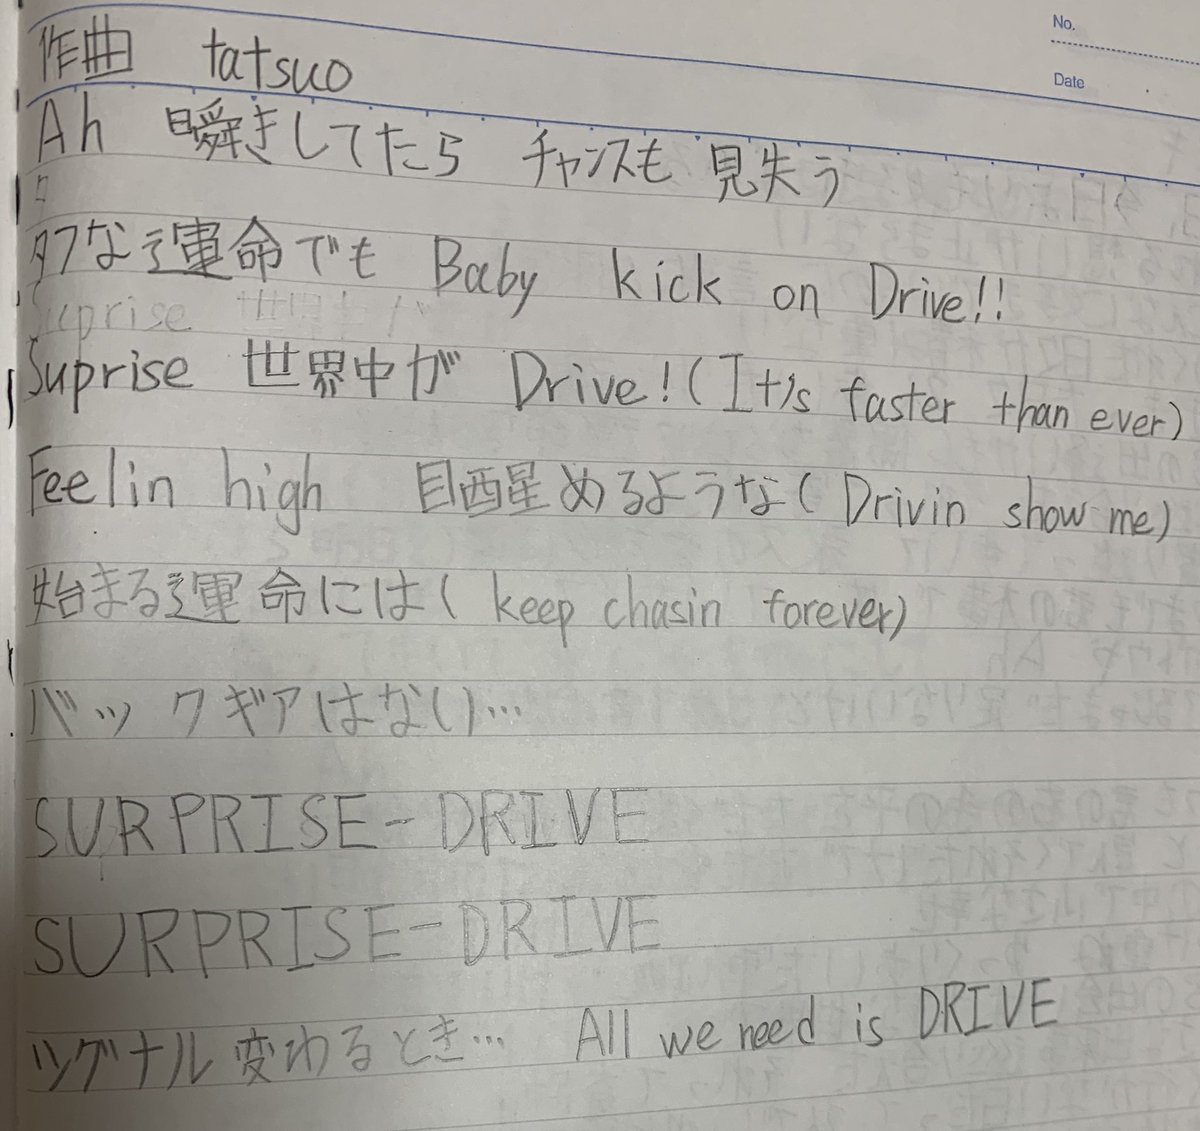 No.
Date
作曲 tatsuo
Ah 瞬きしてたら チャンスも 見失う
タフな運命でも Baby kick on Drive!!
Suprise 世界中が
Suprise 世界中が Drive!(It's faster than ever)
Feelin high 目醒めるような(Drivin show me)
始まる運命には(keep chasin forever)
バックギアはない…
SURPRISE-DRIVE
SURPRISE-DRIVE
ツグナル変わるとき… All we need is DRIVE